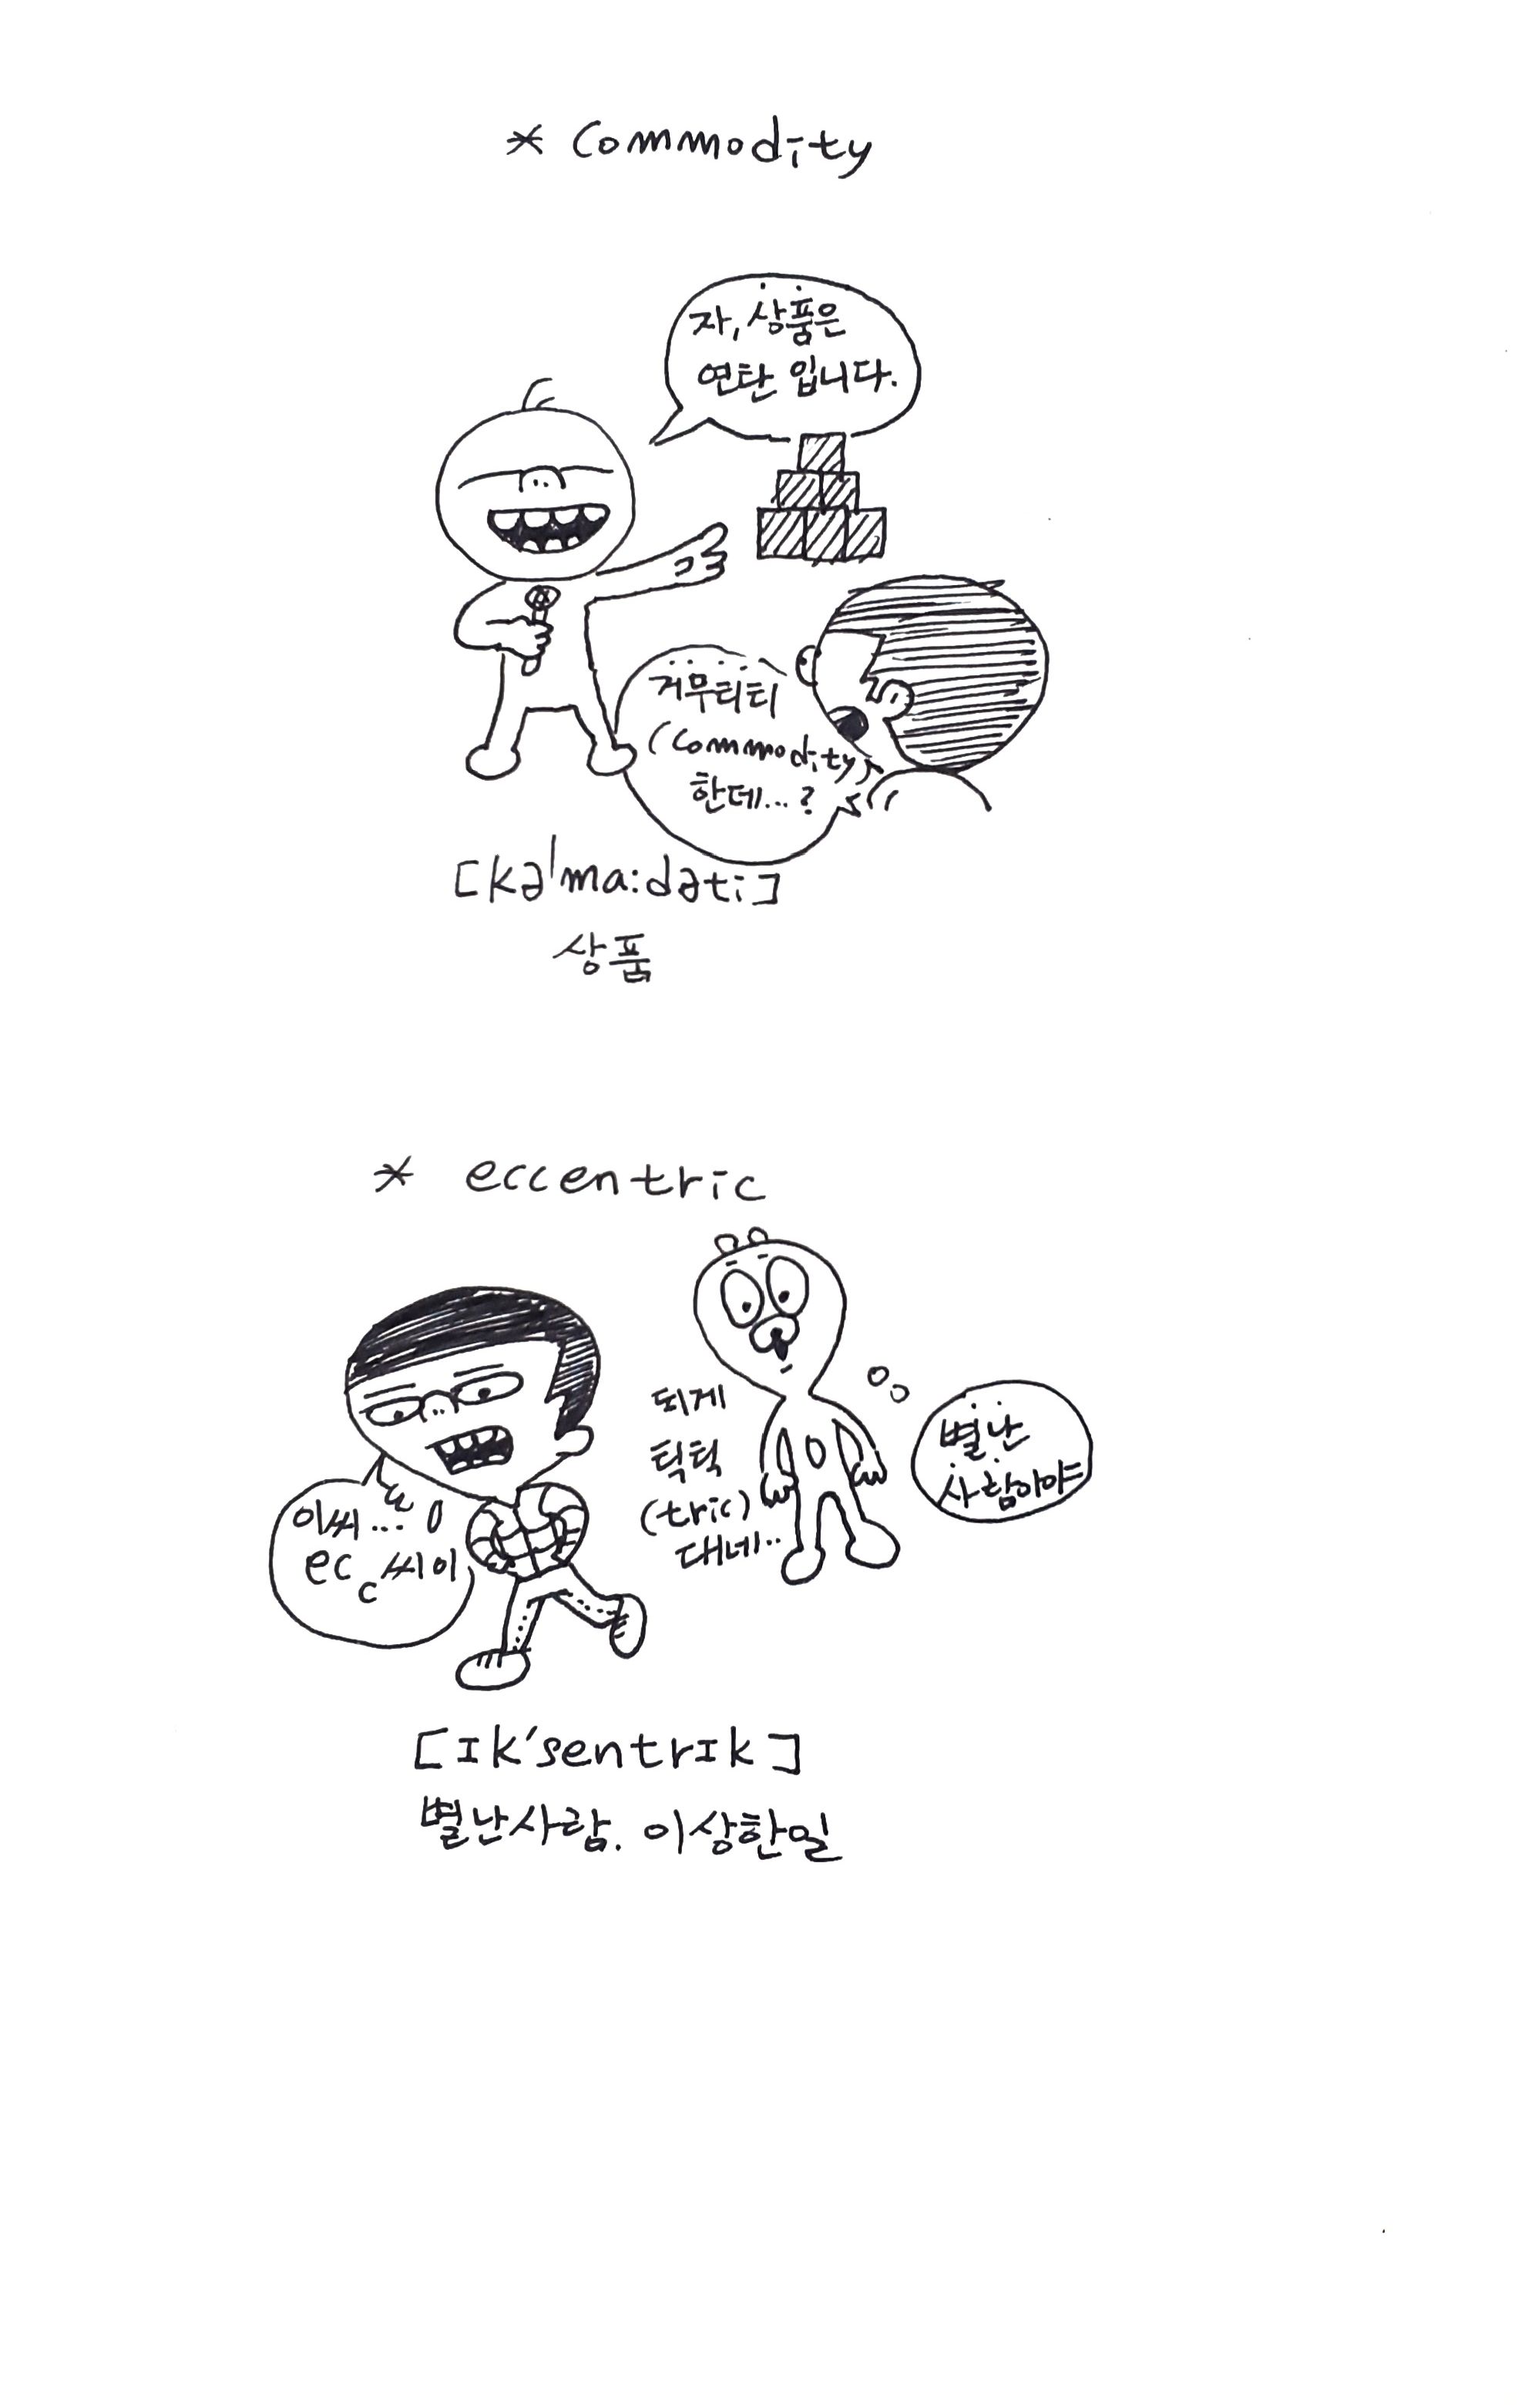 * Commodity
자, 상품은
연탄 입니다.
거무티티
(Commodity)
한데...?
[kə'ma:dəti]
상품
* eccentric
되게
틱틱
(tric)
대네..
별난
사람이야
이씨...
ecc씨이
[ɪk'sentrɪk]
별난사람. 이상한일